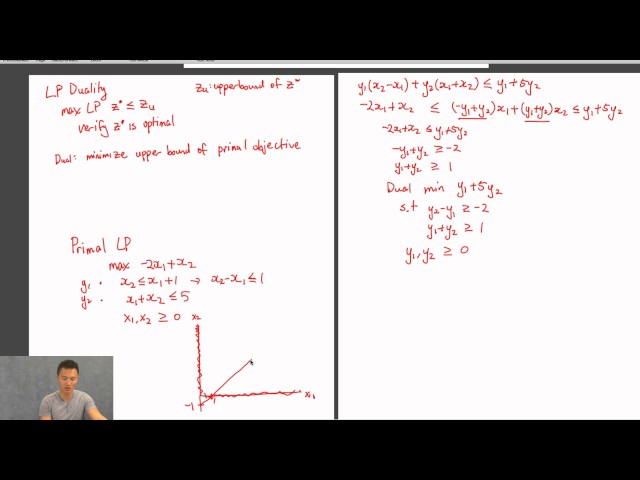 LP Duality
Zu: upperbound of z*
max LP z* ≤ Zu
verify z* is optimal
Dual: minimize upper bound of primal objective
Primal LP
max -2x1+x2
y1 • x2 ≤ x1+1 → x2-x1 ≤ 1
y2 • x1+x2 ≤ 5
x1, x2 ≥ 0
x2
x1
-1
y1(x2-x1) + y2(x1+x2) ≤ y1+5y2
-2x1+x2 ≤ (-y1+y2)x1+(y1+y2)x2 ≤ y1+5y2
-2x1+x2 ≤ y1+5y2
-y1+y2 ≥ -2
y1+y2 ≥ 1
Dual min y1+5y2
s.t y2-y1 ≥ -2
y1+y2 ≥ 1
y1, y2 ≥ 0